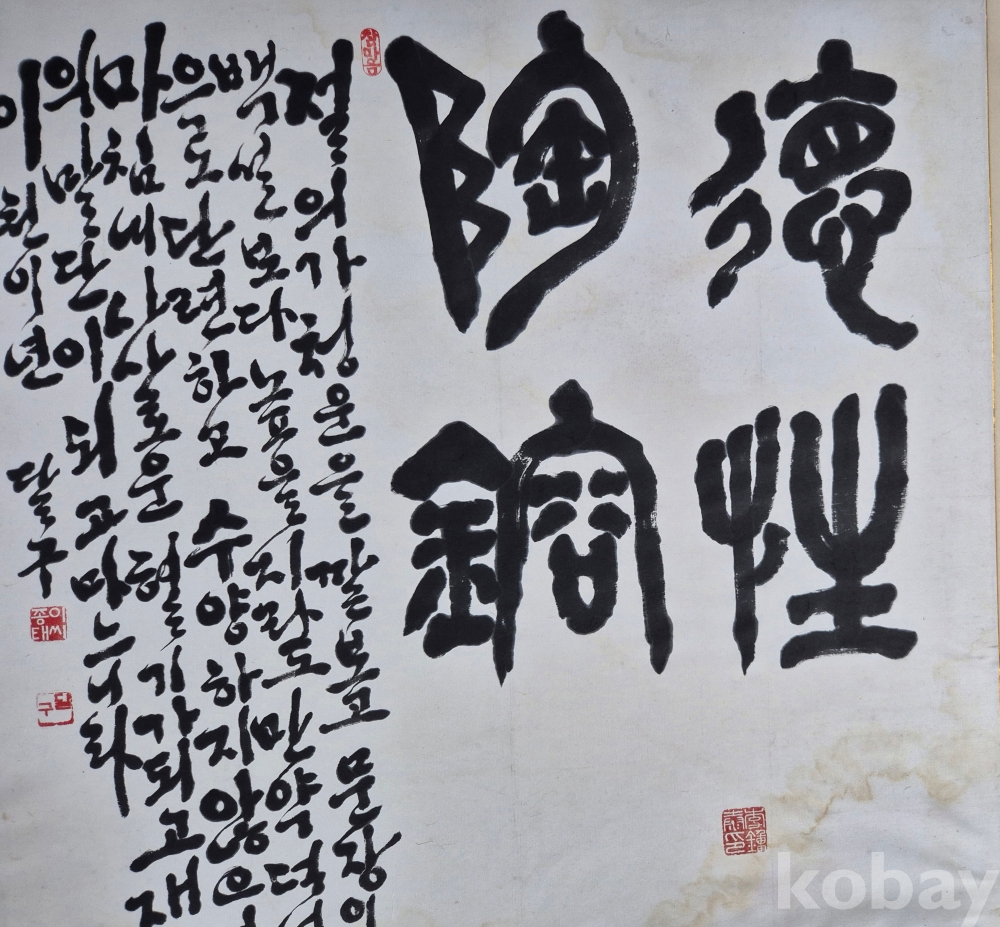 德性
陶鎔
절의가 청운을 깔보고 문장이
백설보다 높을지라도 만약 덕
으로 단련하고 수양하지 않으
마침내 사사로운 혈기가 되고 재
의 말단이 되고 마느니라
이천이년 달구
이씨종태
달구
李鍾泰印
kobay